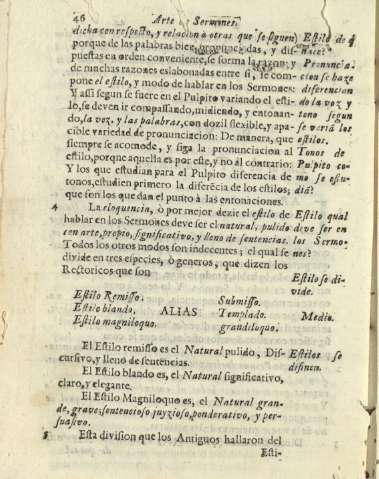 46 Arte de Sermones
dicha con respecto, y relacion à otras que se siguen)
porque de las palabras bien pronunciadas, y dis-
puestas en orden conveniente, se forma la razon; y
de muchas razones eslabonadas entre si, se com-
pone el estilo, y modo de hablar en los Sermones:
Y assi segun se fuere en el Pulpito variando el esti-
lo, se deven ir compassando, midiendo, y entonan-
do, la voz, y las palabras, con dozil flexible, y apa-
cible variedad de pronunciacion: De manera, que
siempre se acomode, y siga la pronunciacion al
estilo, porque aquella es por este, y no al contrario:
Y los que estudian para el Pulpito diferencia de
tonos, estudien primero la diferẽcia de los estilos;
que son los que dan el punto à las entonaciones.
Estilo de
nace?
Pronuncia-
cion se haze
diferencion
de la voz y
tono segun
se varia los
estilos.
Tonos de
Pulpito co-
mo se estu-
diã?
4 La eloquencia, ò por mejor dezir el estilo de
hablar en los Sermones deve ser el natural, pulido
con arte, propio, significativo, y lleno de sentencias.
Todos los otros modos son indecentes; el qual se
divide en tres especies, ò generos, que dizen los
Rectoricos que son
Estilo qual
deve ser en
los Sermo-
nes?
Estilo se di-
vide.
Estilo Remisso. Submisso.
Estilo blando. ALIAS Templado. Medio.
Estilo magniloquo. grandiloquo.
El Estilo remisso es el Natural pulido, Dis-
cursivo, y lleno de sentencias.
Estilos se
difinen.
El Estilo blando es, el Natural significativo,
claro, y elegante.
El Estilo Magniloquo es, el Natural gran-
de, grave, sentencioso juyzioso, ponderativo, y per-
suasivo.
5 Esta division que los Antiguos hallaron del
Esti-